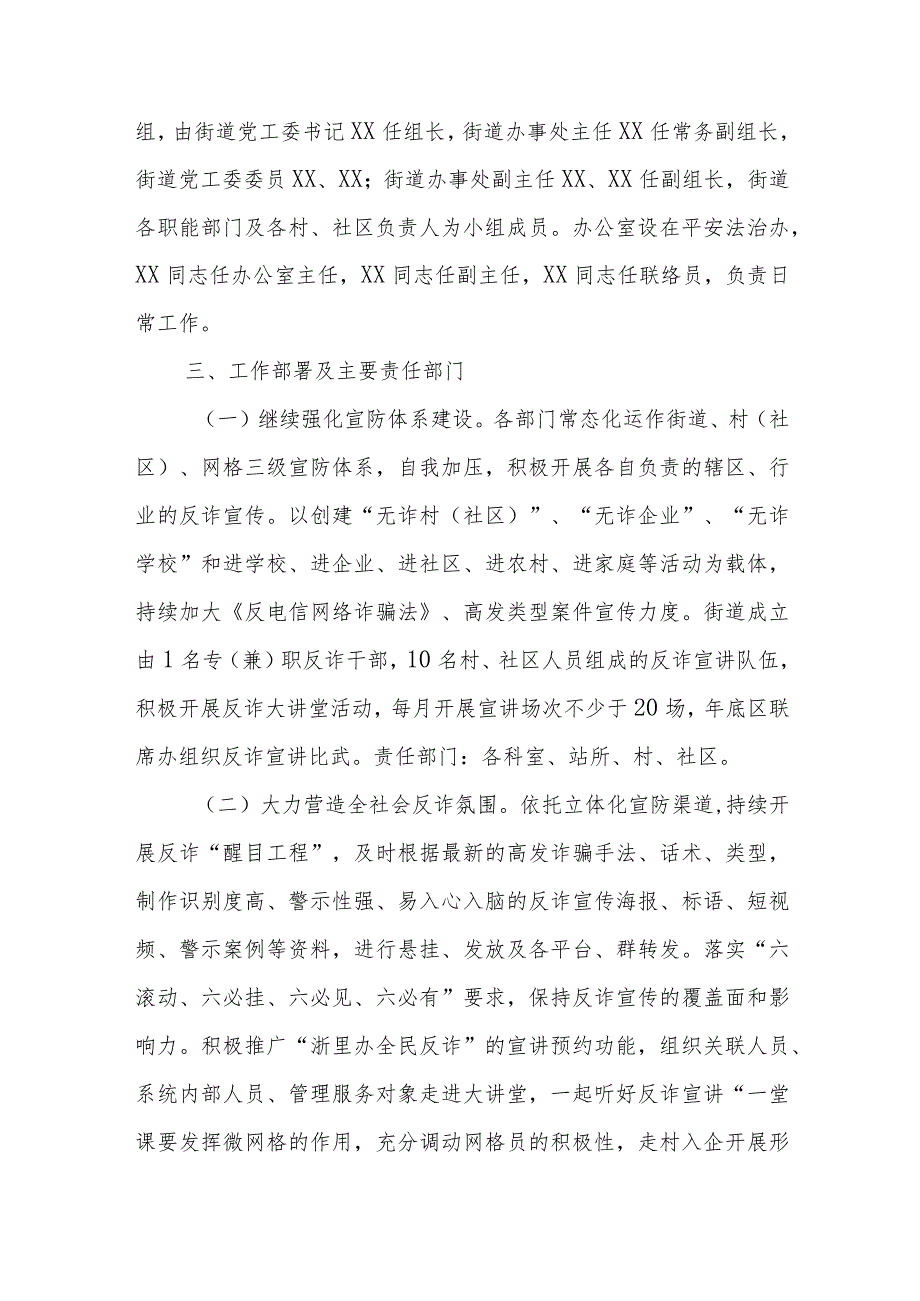 组，由街道党工委书记XX任组长，街道办事处主任XX任常务副组长，
街道党工委委员XX、XX；街道办事处副主任XX、XX任副组长，街道
各职能部门及各村、社区负责人为小组成员。办公室设在平安法治办，
XX同志任办公室主任，XX同志任副主任，XX同志任联络员，负责日
常工作。
三、工作部署及主要责任部门
（一）继续强化宣防体系建设。各部门常态化运作街道、村（社
区）、网格三级宣防体系，自我加压，积极开展各自负责的辖区、行
业的反诈宣传。以创建“无诈村（社区）”、“无诈企业”、“无诈
学校”和进学校、进企业、进社区、进农村、进家庭等活动为载体，
持续加大《反电信网络诈骗法》、高发类型案件宣传力度。街道成立
由1名专（兼）职反诈干部，10名村、社区人员组成的反诈宣讲队伍，
积极开展反诈大讲堂活动，每月开展宣讲场次不少于20场，年底区联
席办组织反诈宣讲比武。责任部门：各科室、站所、村、社区。
（二）大力营造全社会反诈氛围。依托立体化宣防渠道,持续开
展反诈“醒目工程”，及时根据最新的高发诈骗手法、话术、类型，
制作识别度高、警示性强、易入心入脑的反诈宣传海报、标语、短视
频、警示案例等资料，进行悬挂、发放及各平台、群转发。落实“六
滚动、六必挂、六必见、六必有”要求，保持反诈宣传的覆盖面和影
响力。积极推广“浙里办全民反诈”的宣讲预约功能，组织关联人员、
系统内部人员、管理服务对象走进大讲堂，一起听好反诈宣讲“一堂
课要发挥微网格的作用，充分调动网格员的积极性，走村入企开展形